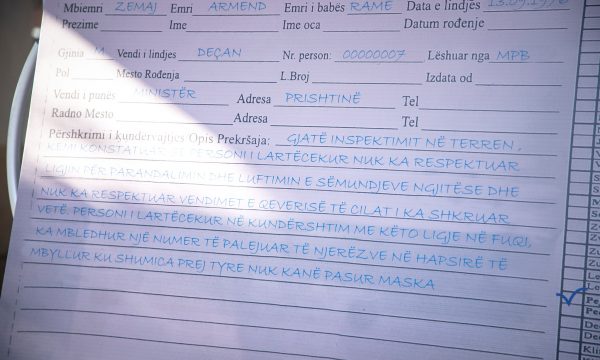 Mbiemri ZEMAJ Emri ARMEND Emri i babës RAME Data e lindjës 13.09.1970
Prezime Ime Ime oca Datum rođenje
Gjinia M Vendi i lindjes DEÇAN Nr. person: 00000007 Lëshuar nga MPB
Pol Mesto Rođenja L.Broj Izdata od
Vendi i punës MINISTËR Adresa PRISHTINË Tel
Radno Mesto Adresa Tel
Përshkrimi i kundervajtjes Opis Prekršaja: GJATË INSPEKTIMIT NË TERREN,
KEMI KONSTATUAR SE PERSONI I LARTËCEKUR NUK KA RESPEKTUAR
LIGJIN PËR PARANDALIMIN DHE LUFTIMIN E SËMUNDJEVE NGJITËSE DHE
NUK KA RESPEKTUAR VENDIMET E QEVERISË TË CILAT I KA SHKRUAR
VETË. PERSONI I LARTËCEKUR NË KUNDËRSHTIM ME KËTO LIGJE NË FUQI,
KA MBLEDHUR NJË NUMER TË PALEJUAR TË NJERËZVE NË HAPSIRË TË
MBYLLUR KU SHUMICA PREJ TYRE NUK KANË PASUR MASKA